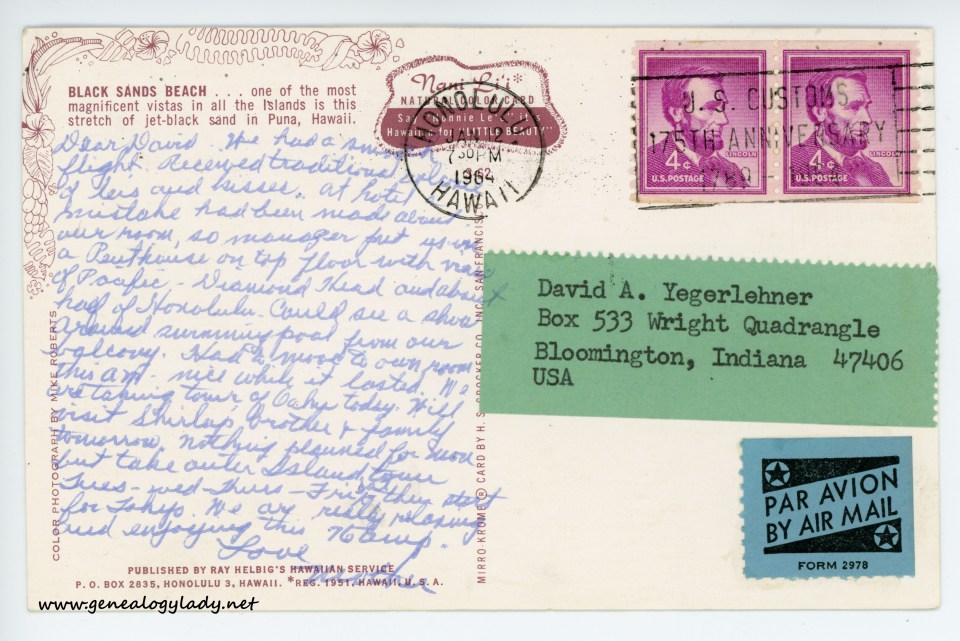 BLACK SANDS BEACH . . . one of the most
magnificent vistas in all the Islands is this
stretch of jet-black sand in Puna, Hawaii.
Nani Li'i*
NATURAL COLOR CARD
Say "Nonnie Le'e"; it's
Hawaiian for "LITTLE BEAUTY"
HONOLULU
730PM
1964
HAWAII
U. S. CUSTOMS
175TH ANNIVERSARY
1789
4¢ LINCOLN
U.S. POSTAGE
4¢ LINCOLN
U.S. POSTAGE
Dear David. We had a smooth
flight. Received traditional
of leis and kisses. At hotel
mistake had been made about
our room, so manager put us in
a Penthouse on top floor with view
of Pacific - Diamond Head and about
half of Honolulu. Could see a show
around swimming pool from our
balcony. Had to move to own room
this AM - nice while it lasted. We
are taking tour of Oahu today. Will
visit Shirley's brother & family
tomorrow, nothing planned for Mon
but take outer Island tour
Tues - Wed - Thurs - Fri then start
for Tokyo. We are really relaxing
and enjoying this
Love
Mother
David A. Yegerlehner
Box 533 Wright Quadrangle
Bloomington, Indiana 47406
USA
PAR AVION
BY AIR MAIL
FORM 2978
COLOR PHOTOGRAPH BY MIKE ROBERTS
MIRRO-KROME® CARD BY H. S. CROCKER CO., INC. SAN FRANCISCO
PUBLISHED BY RAY HELBIG'S HAWAIIAN SERVICE
P. O. BOX 2835, HONOLULU 3, HAWAII. *REG. 1951, HAWAII, U. S. A.
www.genealogylady.net